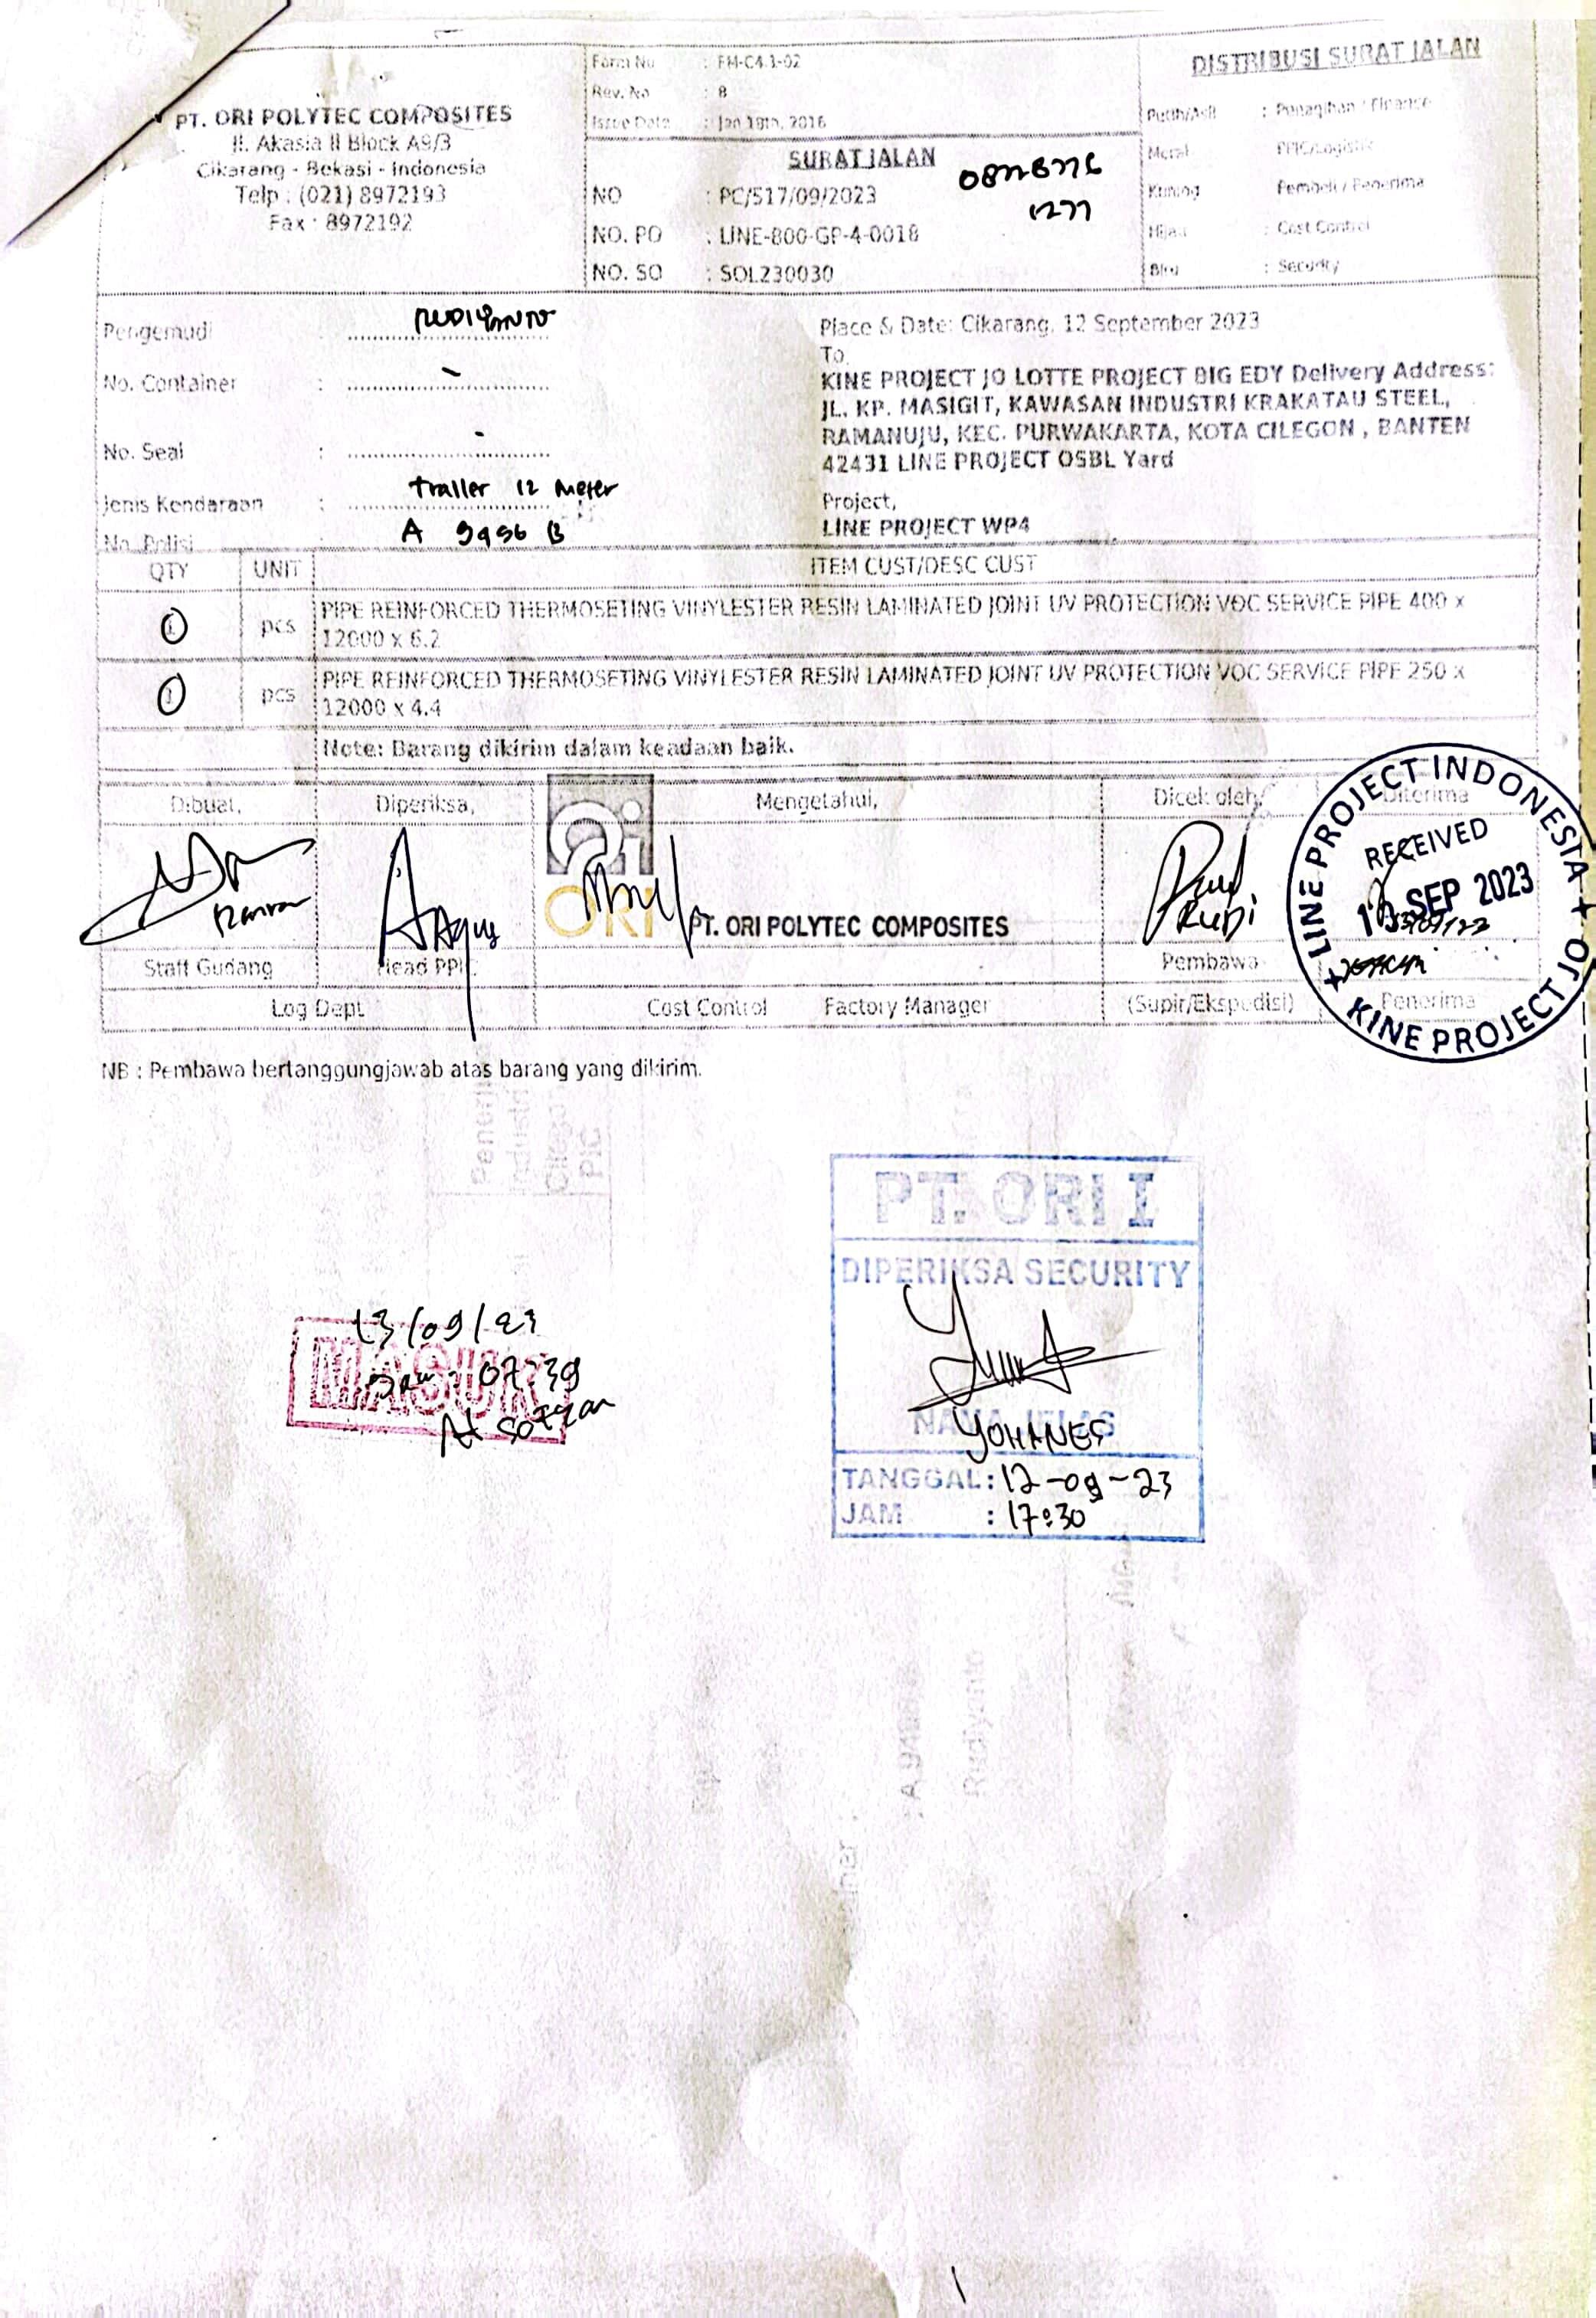 PT. ORI POLYTEC COMPOSITES
Jl. Akasia II Block A9/3
Cikarang - Bekasi - Indonesia
Telp : (021) 8972193
Fax : 8972192
Form No : FM-C4.1-02
Rev. No : 8
Issue Date : Jan 18th, 2016
SURAT JALAN
NO : PC/517/09/2023
NO. PO : LINE-800-GP-4-0018
NO. SO : SOL230030
DISTRIBUSI SURAT JALAN
Putih/Asli : Penagihan / Finance
Merah PPIC/Logistic
Kuning Pembeli / Penerima
Hijau : Cost Control
Biru : Security
Pengemudi :
No. Container : -
No. Seal : -
Jenis Kendaraan : Trailer 12 Meter
No. Polisi : A 9456 B
Place & Date: Cikarang, 12 September 2023
To,
KINE PROJECT JO LOTTE PROJECT BIG EDY Delivery Address:
JL. KP. MASIGIT, KAWASAN INDUSTRI KRAKATAU STEEL,
RAMANUJU, KEC. PURWAKARTA, KOTA CILEGON , BANTEN
42431 LINE PROJECT OSBL Yard
Project,
LINE PROJECT WP4
QTY UNIT ITEM CUST/DESC CUST
1 pcs PIPE REINFORCED THERMOSETING VINYLESTER RESIN LAMINATED JOINT UV PROTECTION VOC SERVICE PIPE 400 x
12000 x 6.2
1 pcs PIPE REINFORCED THERMOSETING VINYLESTER RESIN LAMINATED JOINT UV PROTECTION VOC SERVICE PIPE 250 x
12000 x 4.4
Note: Barang dikirim dalam keadaan baik.
Dibuat, Diperiksa, Mengetahui, Dicek oleh, Diterima
Agus
ORI
PT. ORI POLYTEC COMPOSITES
RUDI
LINE PROJECT INDONESIA
RECEIVED
SEP 2023
KINE PROJECT JO
Staff Gudang Head PPIC Pembawa
Log Dept Cost Control Factory Manager (Supir/Ekspedisi) Penerima
NB : Pembawa bertanggungjawab atas barang yang dikirim.
PT. ORI I
DIPERIKSA SECURITY
NAMA JELAS
YOHANES
TANGGAL : 12-09-23
JAM : 17:30
13/09/23
MASUK
07:39